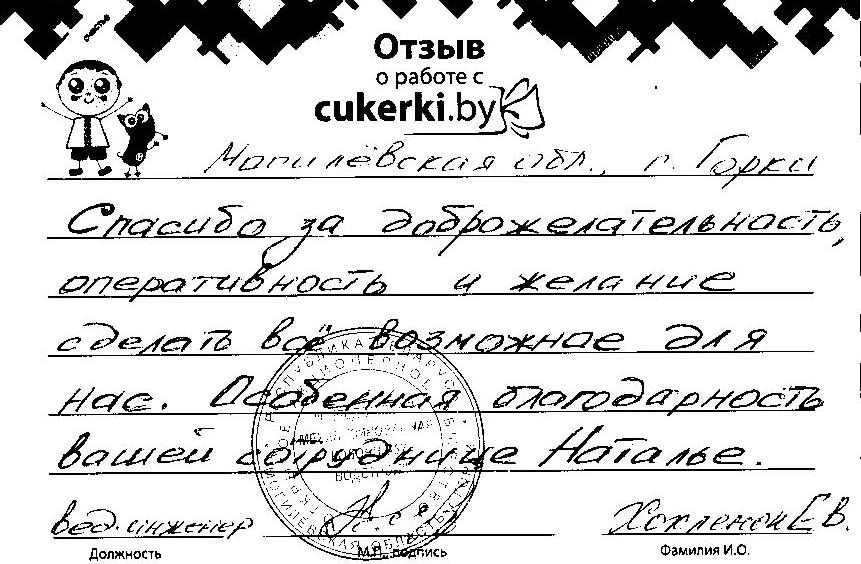 счастье
Отзыв
о работе с
cukerki.by
Могилёвская обл., г. Горки
Спасибо за доброжелательность,
оперативность и желание
сделать всё возможное для
нас. Особенная благодарность
вашей сотруднице Наталье.
вед. инженер Хохленок Е.В.
Должность М.П., подпись Фамилия И.О.